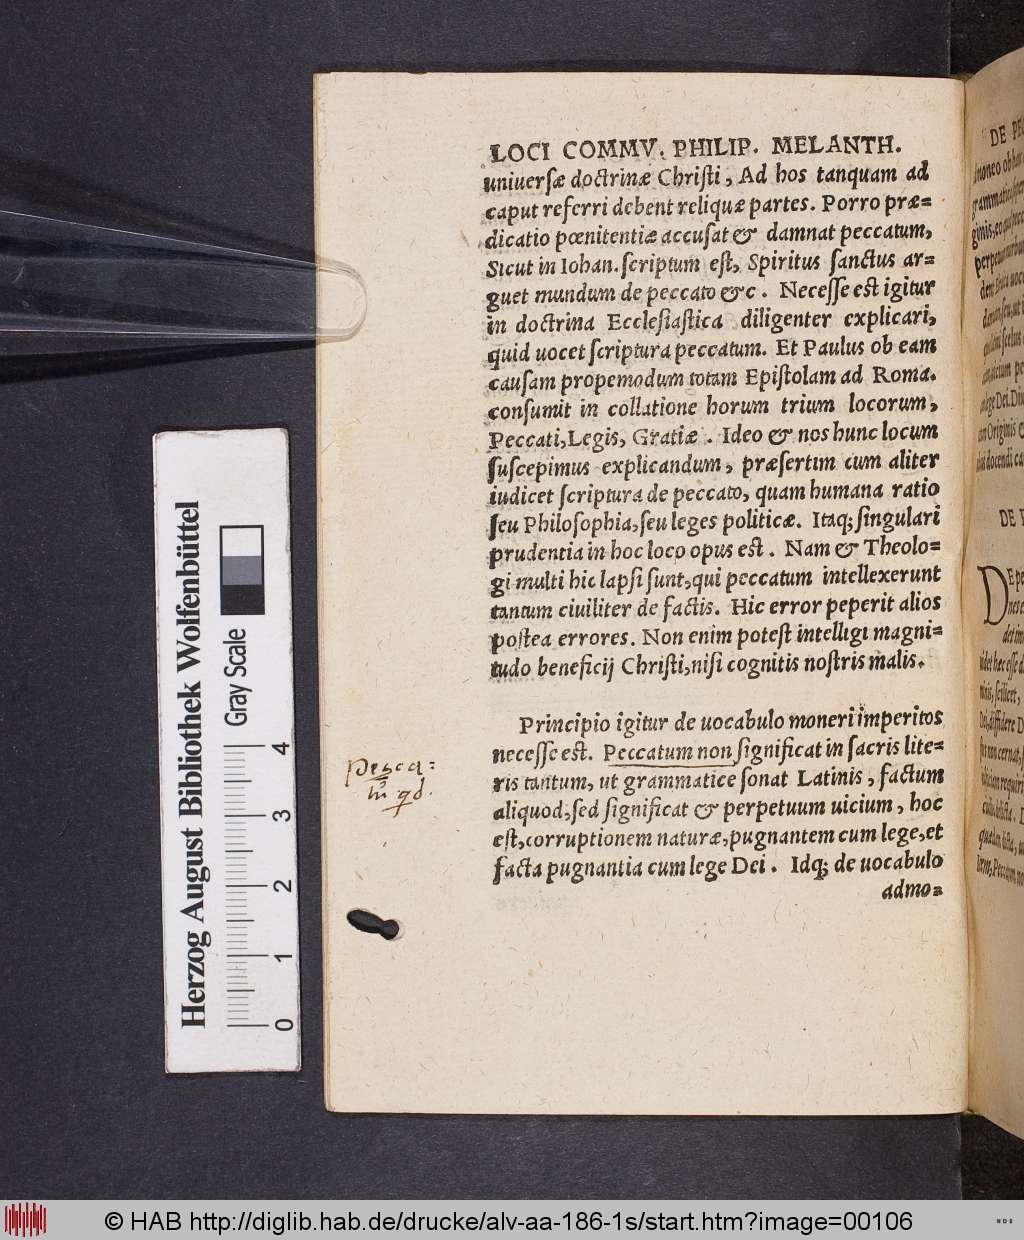 LOCI COMMV. PHILIP. MELANTH.
uniuersæ doctrinæ Christi, Ad hos tanquam ad
caput referri debent reliquæ partes. Porro præ=
dicatio pœnitentiæ accusat & damnat peccatum,
Sicut in Iohan. scriptum est, Spiritus sanctus ar=
guet mundum de peccato &c. Necesse est igitur
in doctrina Ecclesiastica diligenter explicari,
quid uocet scriptura peccatum. Et Paulus ob eam
causam propemodum totam Epistolam ad Roma.
consumit in collatione horum trium locorum,
Peccati, Legis, Gratiæ. Ideo & nos hunc locum
suscepimus explicandum, præsertim cum aliter
iudicet scriptura de peccato, quam humana ratio
seu Philosophia, seu leges politicæ. Itaq; singulari
prudentia in hoc loco opus est. Nam & Theolo=
gi multi hic lapsi sunt, qui peccatum intellexerunt
tantum ciuiliter de factis. Hic error peperit alios
postea errores. Non enim potest intelligi magni=
tudo beneficij Christi, nisi cognitis nostris malis.
Principio igitur de uocabulo moneri imperitos
necesse est. Peccatum non significat in sacris lite=
ris tantum, ut grammatice sonat Latinis, factum
aliquod, sed significat & perpetuum uicium, hoc
est, corruptionem naturæ, pugnantem cum lege, et
facta pugnantia cum lege Dei. Idq; de uocabulo
admo=
Pecca=
tū qd.
Herzog August Bibliothek Wolfenbüttel
Gray Scale
0 1 2 3 4
DE PE
DE P
© HAB http://diglib.hab.de/drucke/alv-aa-186-1s/start.htm?image=00106